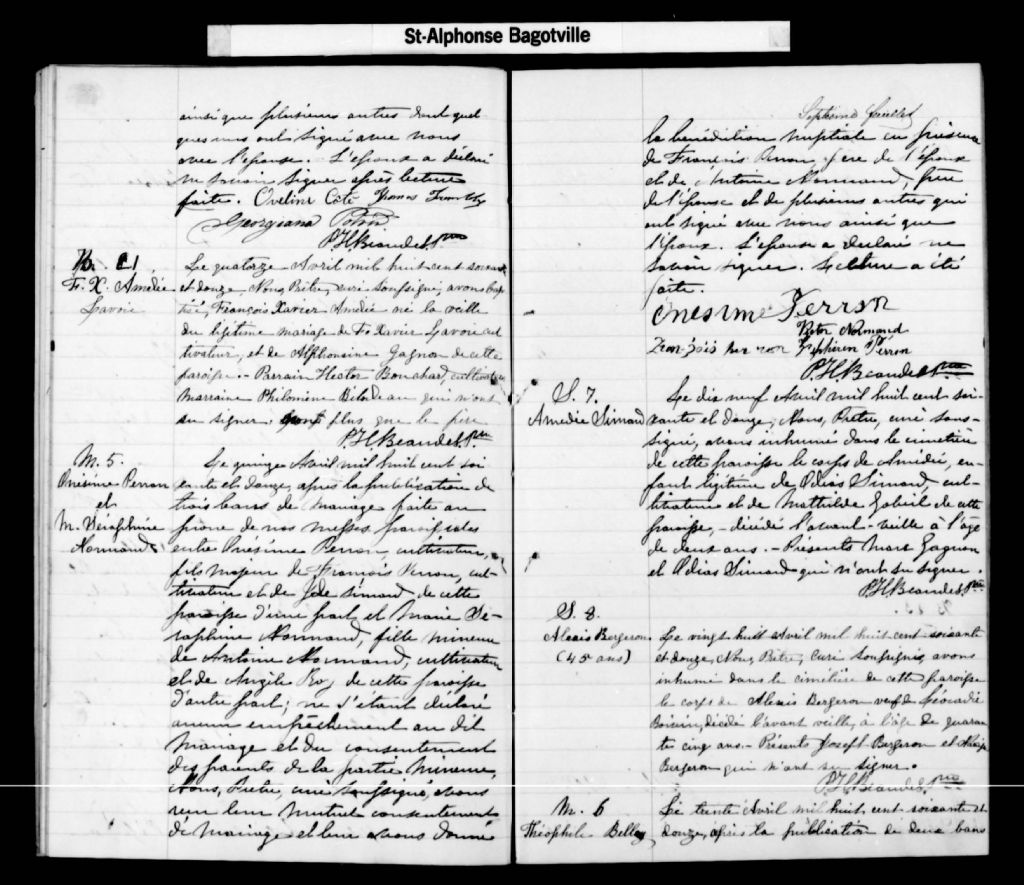 St-Alphonse Bagotville
ainsi que plusieurs autres dont quel
ques uns ont signé avec nous
avec l'épouse. L'époux a déclaré
ne savoir signer après lecture
faite. Oveline Côté Thomas
Georgiana
P.H. Beaudet Ptre
Le quatorze Avril mil huit cent soixante
F. X. Amédée
et douze, Nous, Prêtre, curé soussigné, avons bap
Lavoie
tisé, François Xavier Amédée né la veille
du légitime mariage de Fs Xavier Lavoie cul
tivateur, et de Alphonsine Gagnon de cette
paroisse. - Parrain Hector Bouchard, cultivateur
Marraine Philomène Bilodeau qui n'ont
su signer non plus que le père
P.H. Beaudet Ptre
M. 5.
Le quinze Avril mil huit cent soi
Onésime Perron
xante et douze, après la publication de
et
trois bans de mariage faite au
M. Séraphine
prône de nos messes paroissiales
Normand
entre Onésime Perron, cultivateur,
fils majeur de François Perron, cul-
tivateur et de Simard de cette
paroisse d'une part et Marie Sé-
raphine Normand, fille mineure
de Antoine Normand, cultivateur
et de Angèle Roy de cette paroisse
d'autre part; ne s'étant déclaré
aucun empêchement au dit
mariage et du consentement
des parents de la partie mineure,
Nous, Prêtre, curé soussigné, avons
reçu leur mutuel consentement
de mariage et leur avons donné
Septième feuillet
la bénédiction nuptiale en présence
de François Perron, père de l'époux
et de Antoine Normand, père
de l'épouse et de plusieurs autres qui
ont signé avec nous ainsi que
l'époux. L'épouse a déclaré ne
savoir signer. Lecture a été
faite.
Onesime Perron
Normand
Zephirin Perron
P.H. Beaudet Ptre
S. 7.
Le dix neuf Avril mil huit cent soi-
Amédée Simard
xante et douze, Nous, Prêtre, curé sous-
signé, avons inhumé dans le cimetière
de cette paroisse le corps de Amédée, en-
fant légitime de Odias Simard, cul-
tivateur et de Mathilde de cette
paroisse, - décédé l'avant-veille à l'âge
de deux ans. - Présents Marc Gagnon
et Odias Simard qui n'ont su signer.
P.H. Beaudet Ptre
S. 8.
Alexis Bergeron
Le vingt huit Avril mil huit cent soixante
(45 ans)
et douze, Nous, Prêtre, Curé soussigné, avons
inhumé dans le cimétière de cette paroisse
le corps de Alexis Bergeron veuf de Léocadie
Boivin, décédé l'avant veille, à l'âge de quaran
te cinq ans. - Présents Joseph Bergeron et
Bergeron qui n'ont su signer.
P.H. Beaudet Ptre
M. 6
Le trente Avril mil huit cent soixante et
Théophile Belley
douze, après la publication de deux bans